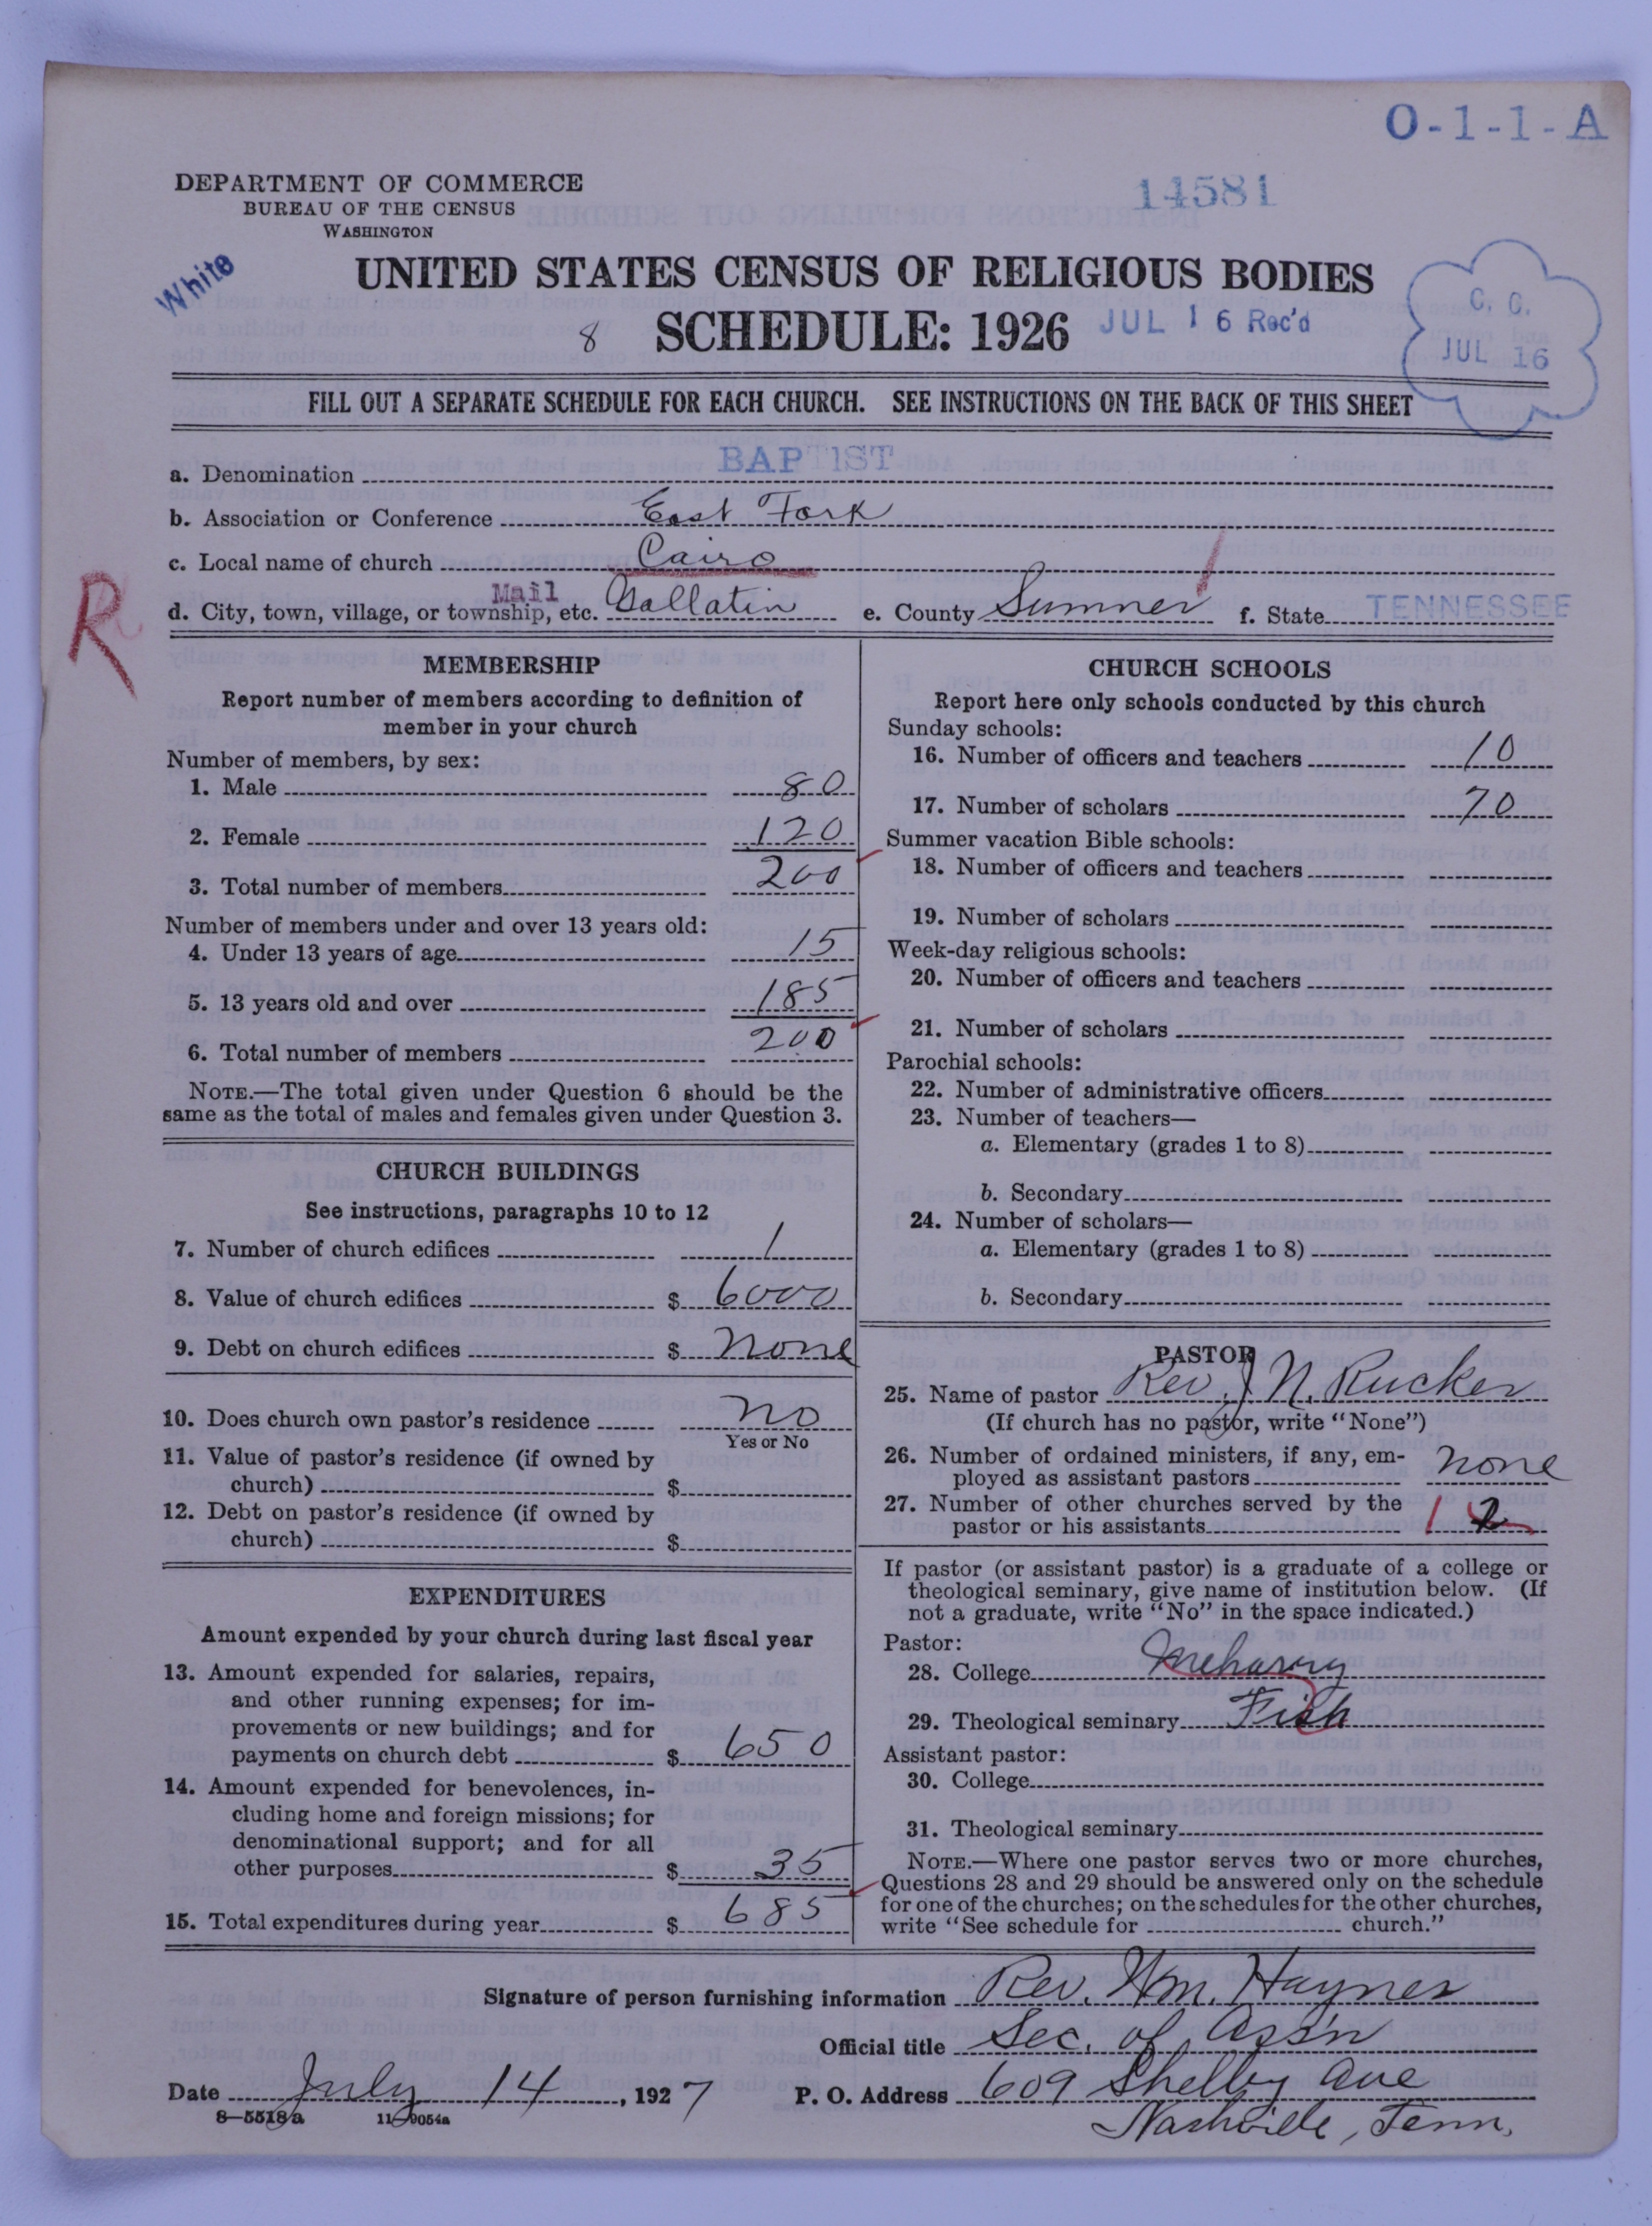 O-1-1-A
DEPARTMENT OF COMMERCE
BUREAU OF THE CENSUS
WASHINGTON
14581
White
UNITED STATES CENSUS OF RELIGIOUS BODIES
8 SCHEDULE: 1926 JUL 16 Rec'd
C. C.
JUL 16
FILL OUT A SEPARATE SCHEDULE FOR EACH CHURCH. SEE INSTRUCTIONS ON THE BACK OF THIS SHEET
a. Denomination BAPTIST
b. Association or Conference East Fork
c. Local name of church Cairo
R
Mail
d. City, town, village, or township, etc. Gallatin e. County Sumner f. State TENNESSEE
MEMBERSHIP
Report number of members according to definition of
member in your church
Number of members, by sex:
1. Male 80
2. Female 120
3. Total number of members 200
Number of members under and over 13 years old:
4. Under 13 years of age 15
5. 13 years old and over 185
6. Total number of members 200
NOTE.—The total given under Question 6 should be the
same as the total of males and females given under Question 3.
CHURCH BUILDINGS
See instructions, paragraphs 10 to 12
7. Number of church edifices 1
8. Value of church edifices $ 6000
9. Debt on church edifices $ None
10. Does church own pastor's residence No
Yes or No
11. Value of pastor's residence (if owned by
church) $
12. Debt on pastor's residence (if owned by
church) $
EXPENDITURES
Amount expended by your church during last fiscal year
13. Amount expended for salaries, repairs,
and other running expenses; for im-
provements or new buildings; and for
payments on church debt $ 650
14. Amount expended for benevolences, in-
cluding home and foreign missions; for
denominational support; and for all
other purposes $ 35
15. Total expenditures during year $ 685
CHURCH SCHOOLS
Report here only schools conducted by this church
Sunday schools:
16. Number of officers and teachers 10
17. Number of scholars 70
Summer vacation Bible schools:
18. Number of officers and teachers
19. Number of scholars
Week-day religious schools:
20. Number of officers and teachers
21. Number of scholars
Parochial schools:
22. Number of administrative officers
23. Number of teachers—
a. Elementary (grades 1 to 8)
b. Secondary
24. Number of scholars—
a. Elementary (grades 1 to 8)
b. Secondary
PASTOR
25. Name of pastor Rev. J. N. Rucker
(If church has no pastor, write "None")
26. Number of ordained ministers, if any, em-
ployed as assistant pastors None
27. Number of other churches served by the
pastor or his assistants 1 2
If pastor (or assistant pastor) is a graduate of a college or
theological seminary, give name of institution below. (If
not a graduate, write "No" in the space indicated.)
Pastor:
28. College Meharry
29. Theological seminary Fisk
Assistant pastor:
30. College
31. Theological seminary
NOTE.—Where one pastor serves two or more churches,
Questions 28 and 29 should be answered only on the schedule
for one of the churches; on the schedules for the other churches,
write "See schedule for church."
Signature of person furnishing information Rev. Wm. Haynes
Official title Sec. of Ass'n
Date July 14, 1927 P. O. Address 609 Shelby Ave
Nashville, Tenn.
8—5518a 11—9054a